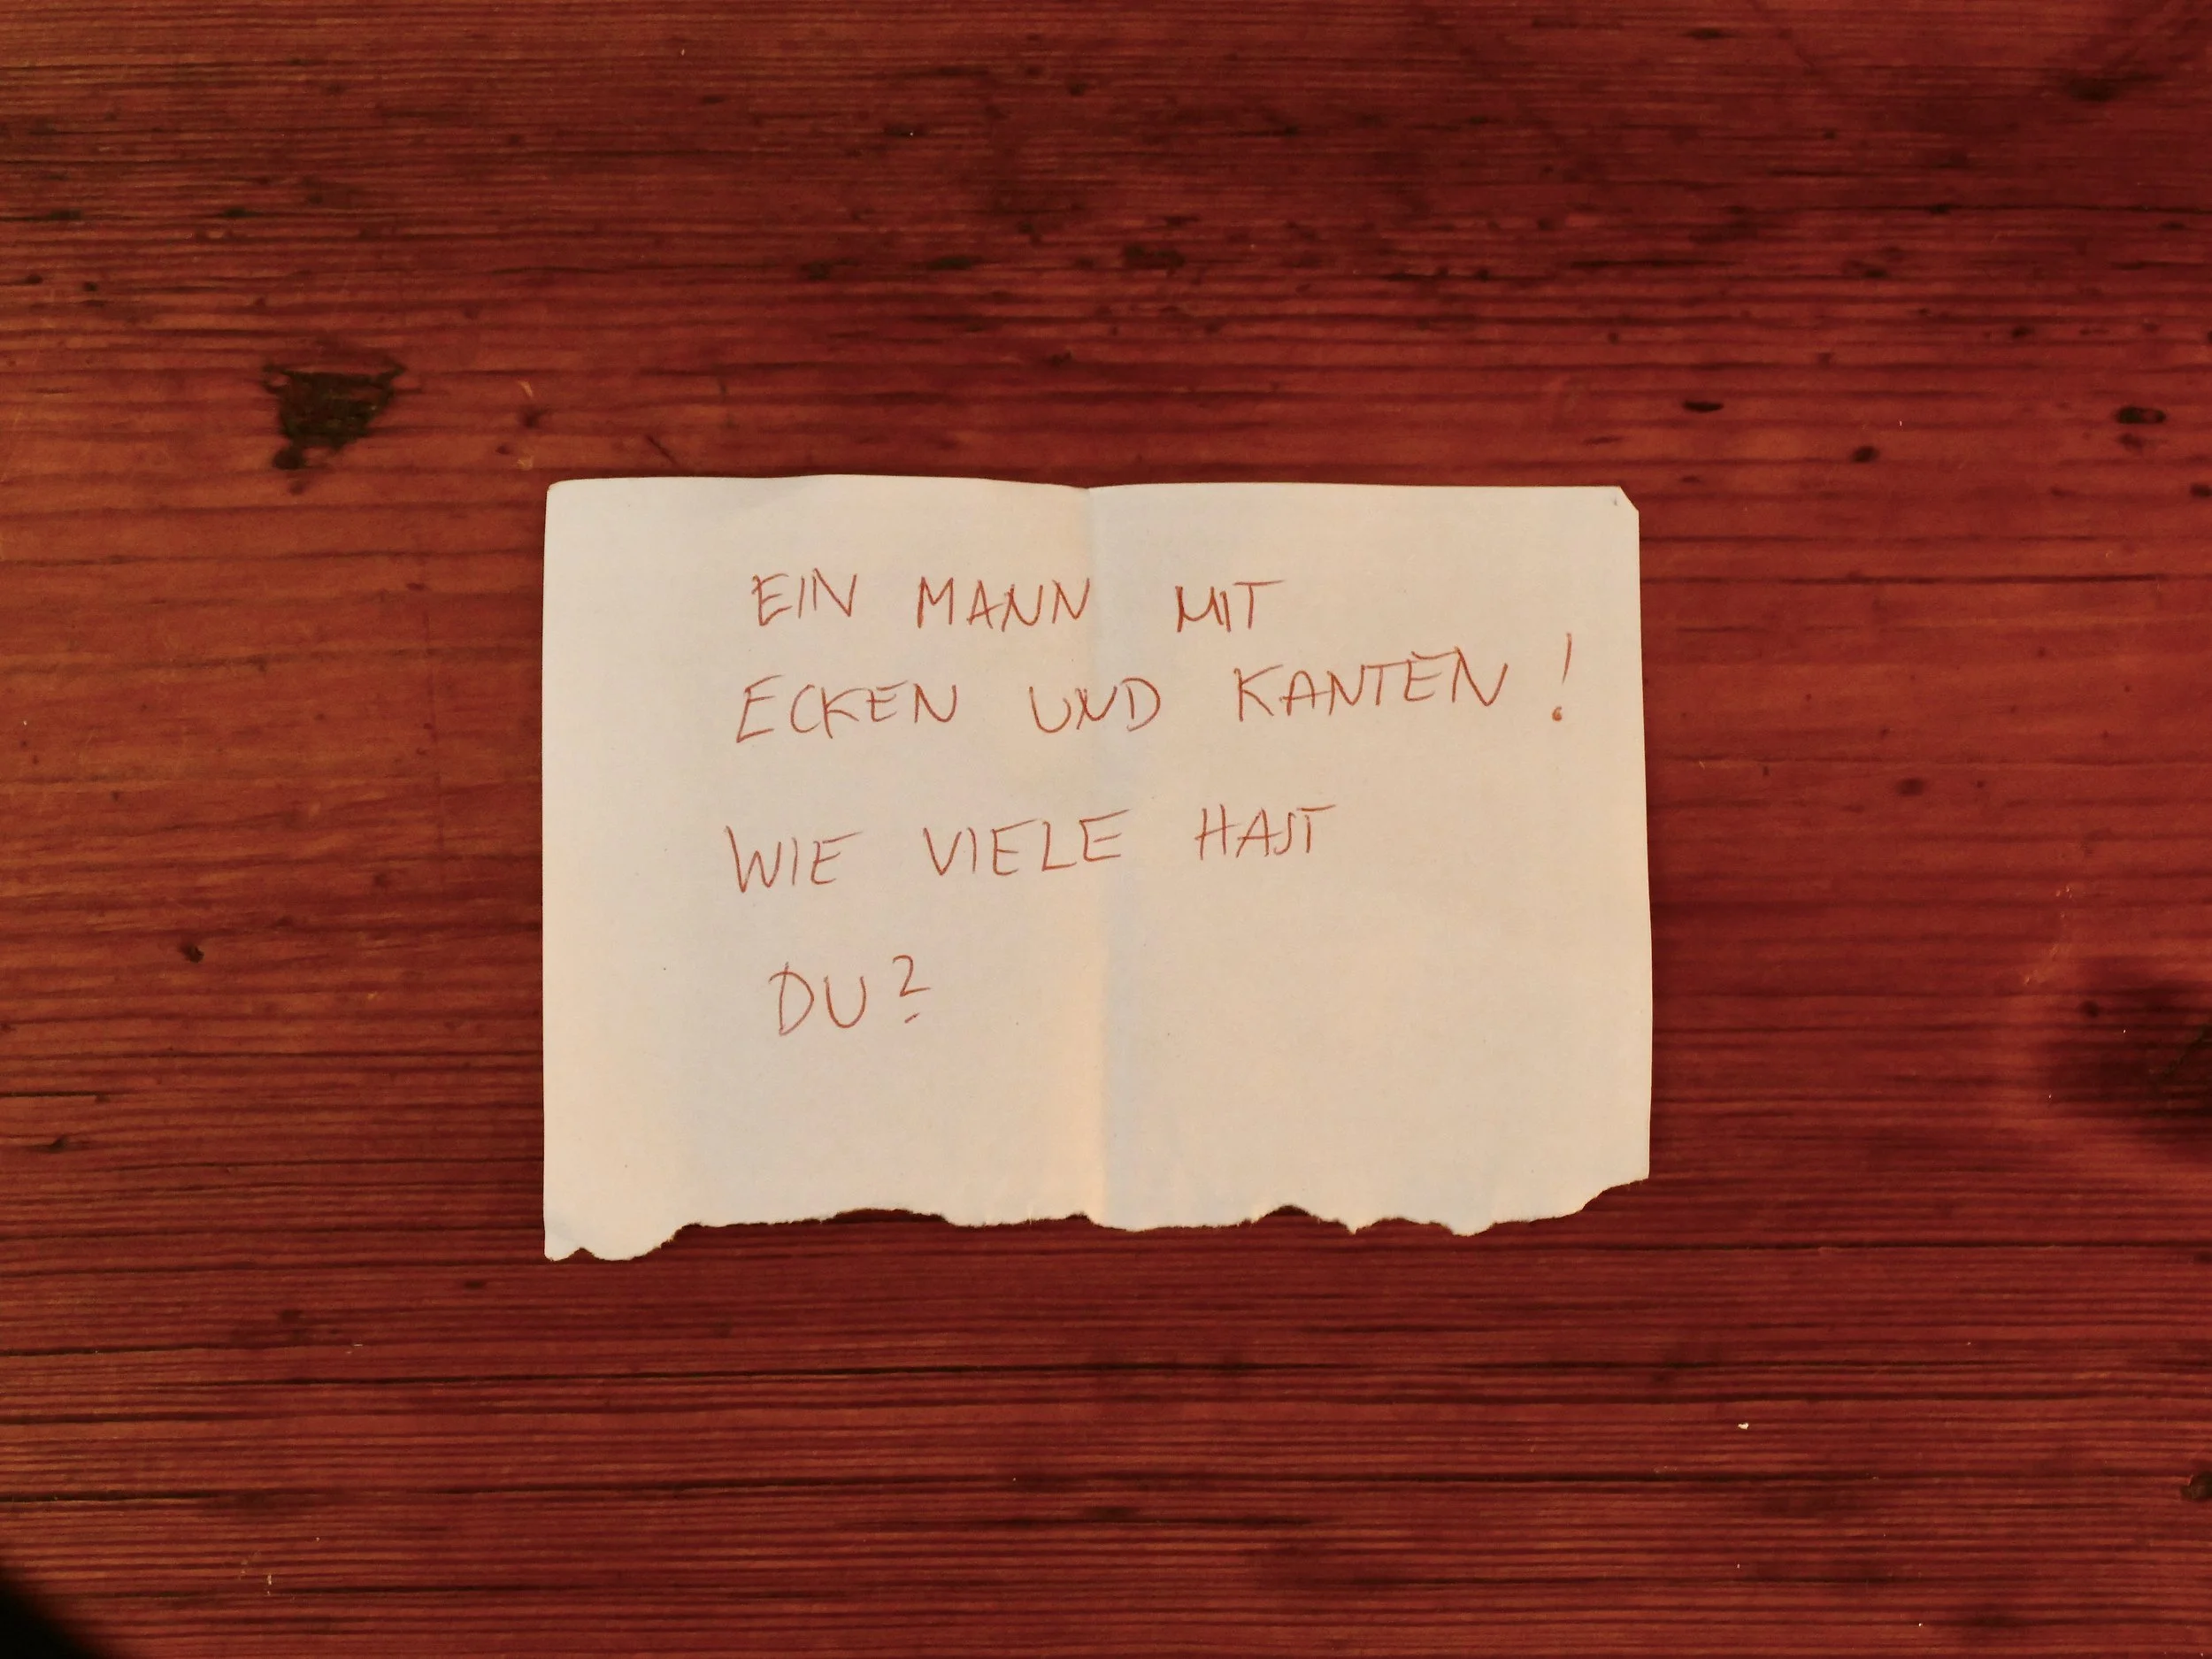 EIN MANN MIT
ECKEN UND KANTEN!
WIE VIELE HAST
DU?